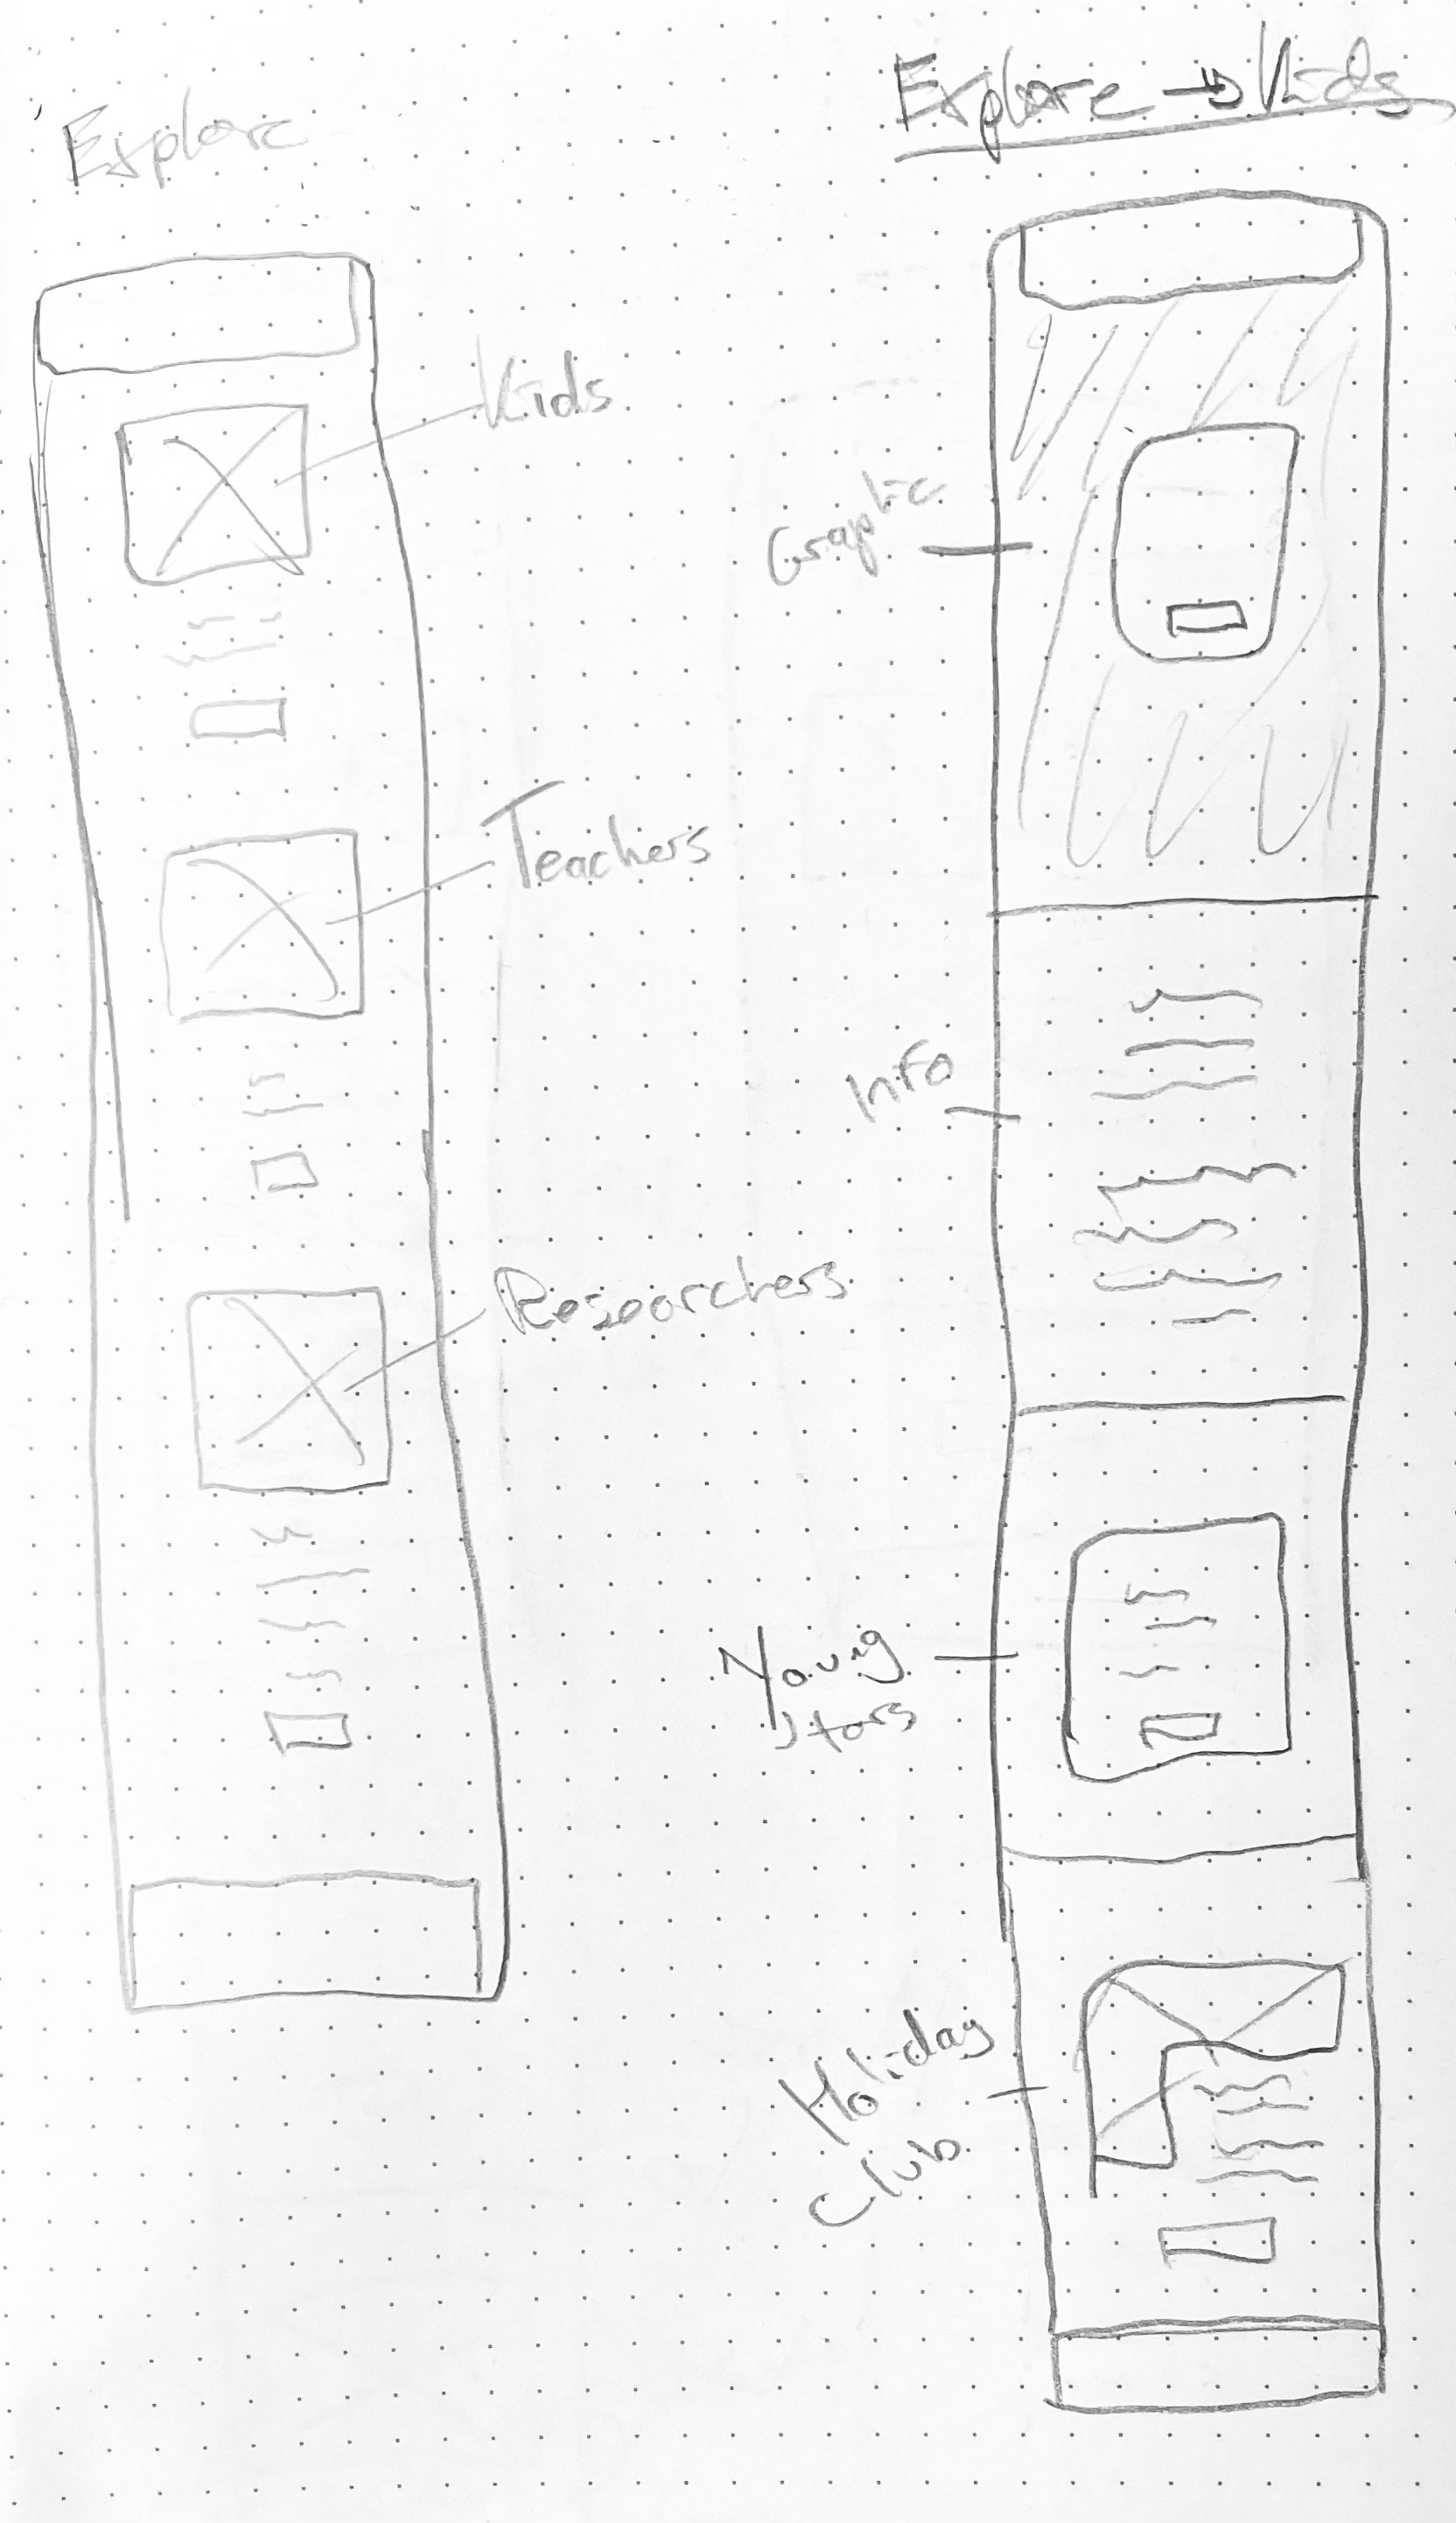 Explore
Kids
Teachers
Researchers
Explore → Kids
Graphic
Info
Young
Stars
Holiday
Club